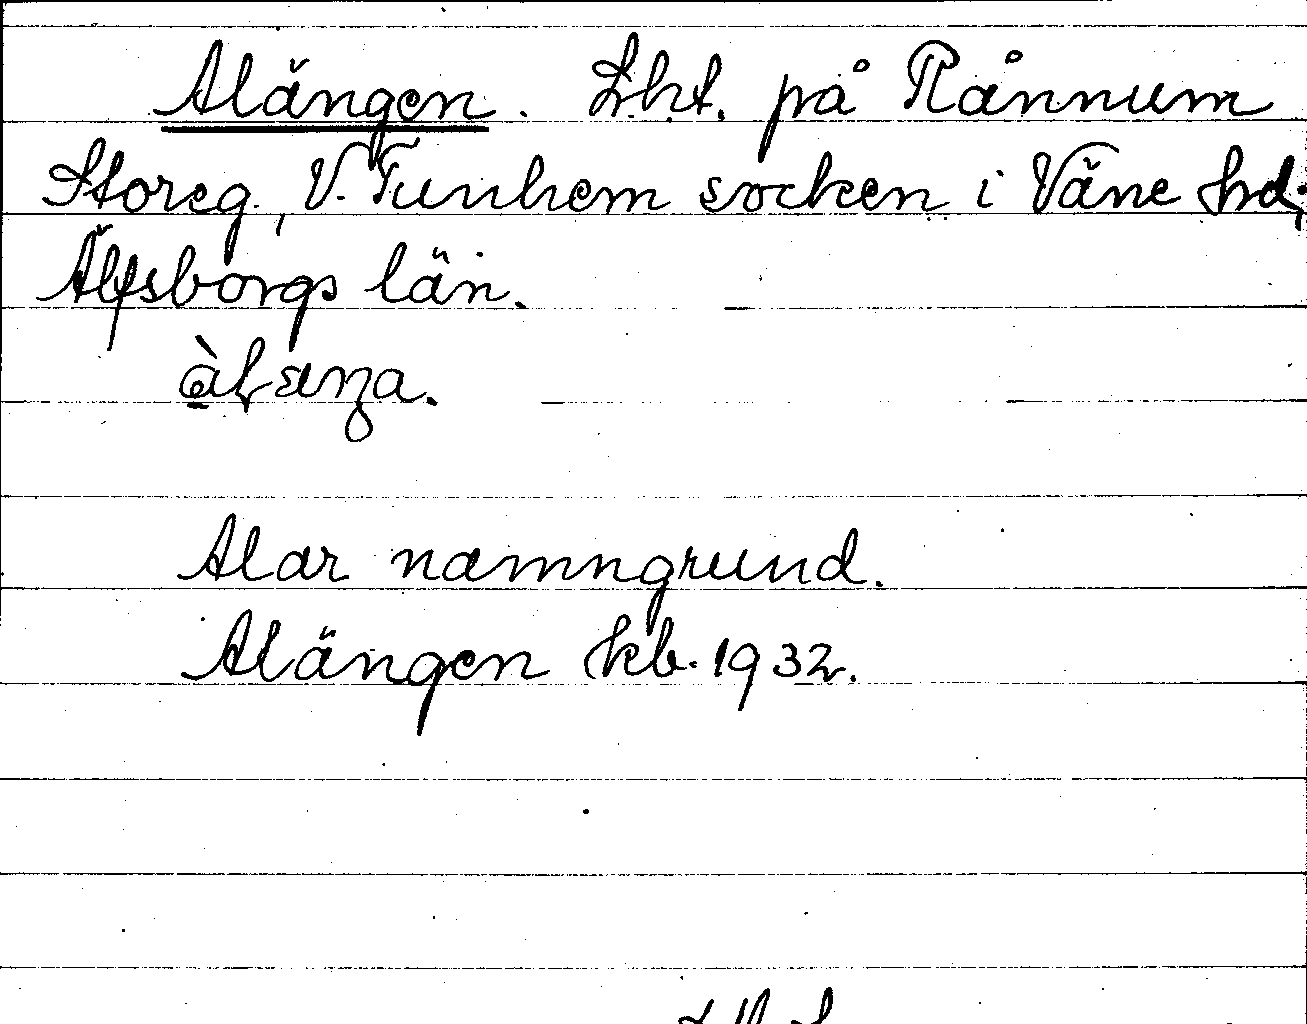 Alängen. Lht. på Rånnum
Storeg., V. Tunhem socken i Väne hd,
Älfsborgs län.
Alar namngrund.
Alängen kb. 1932.